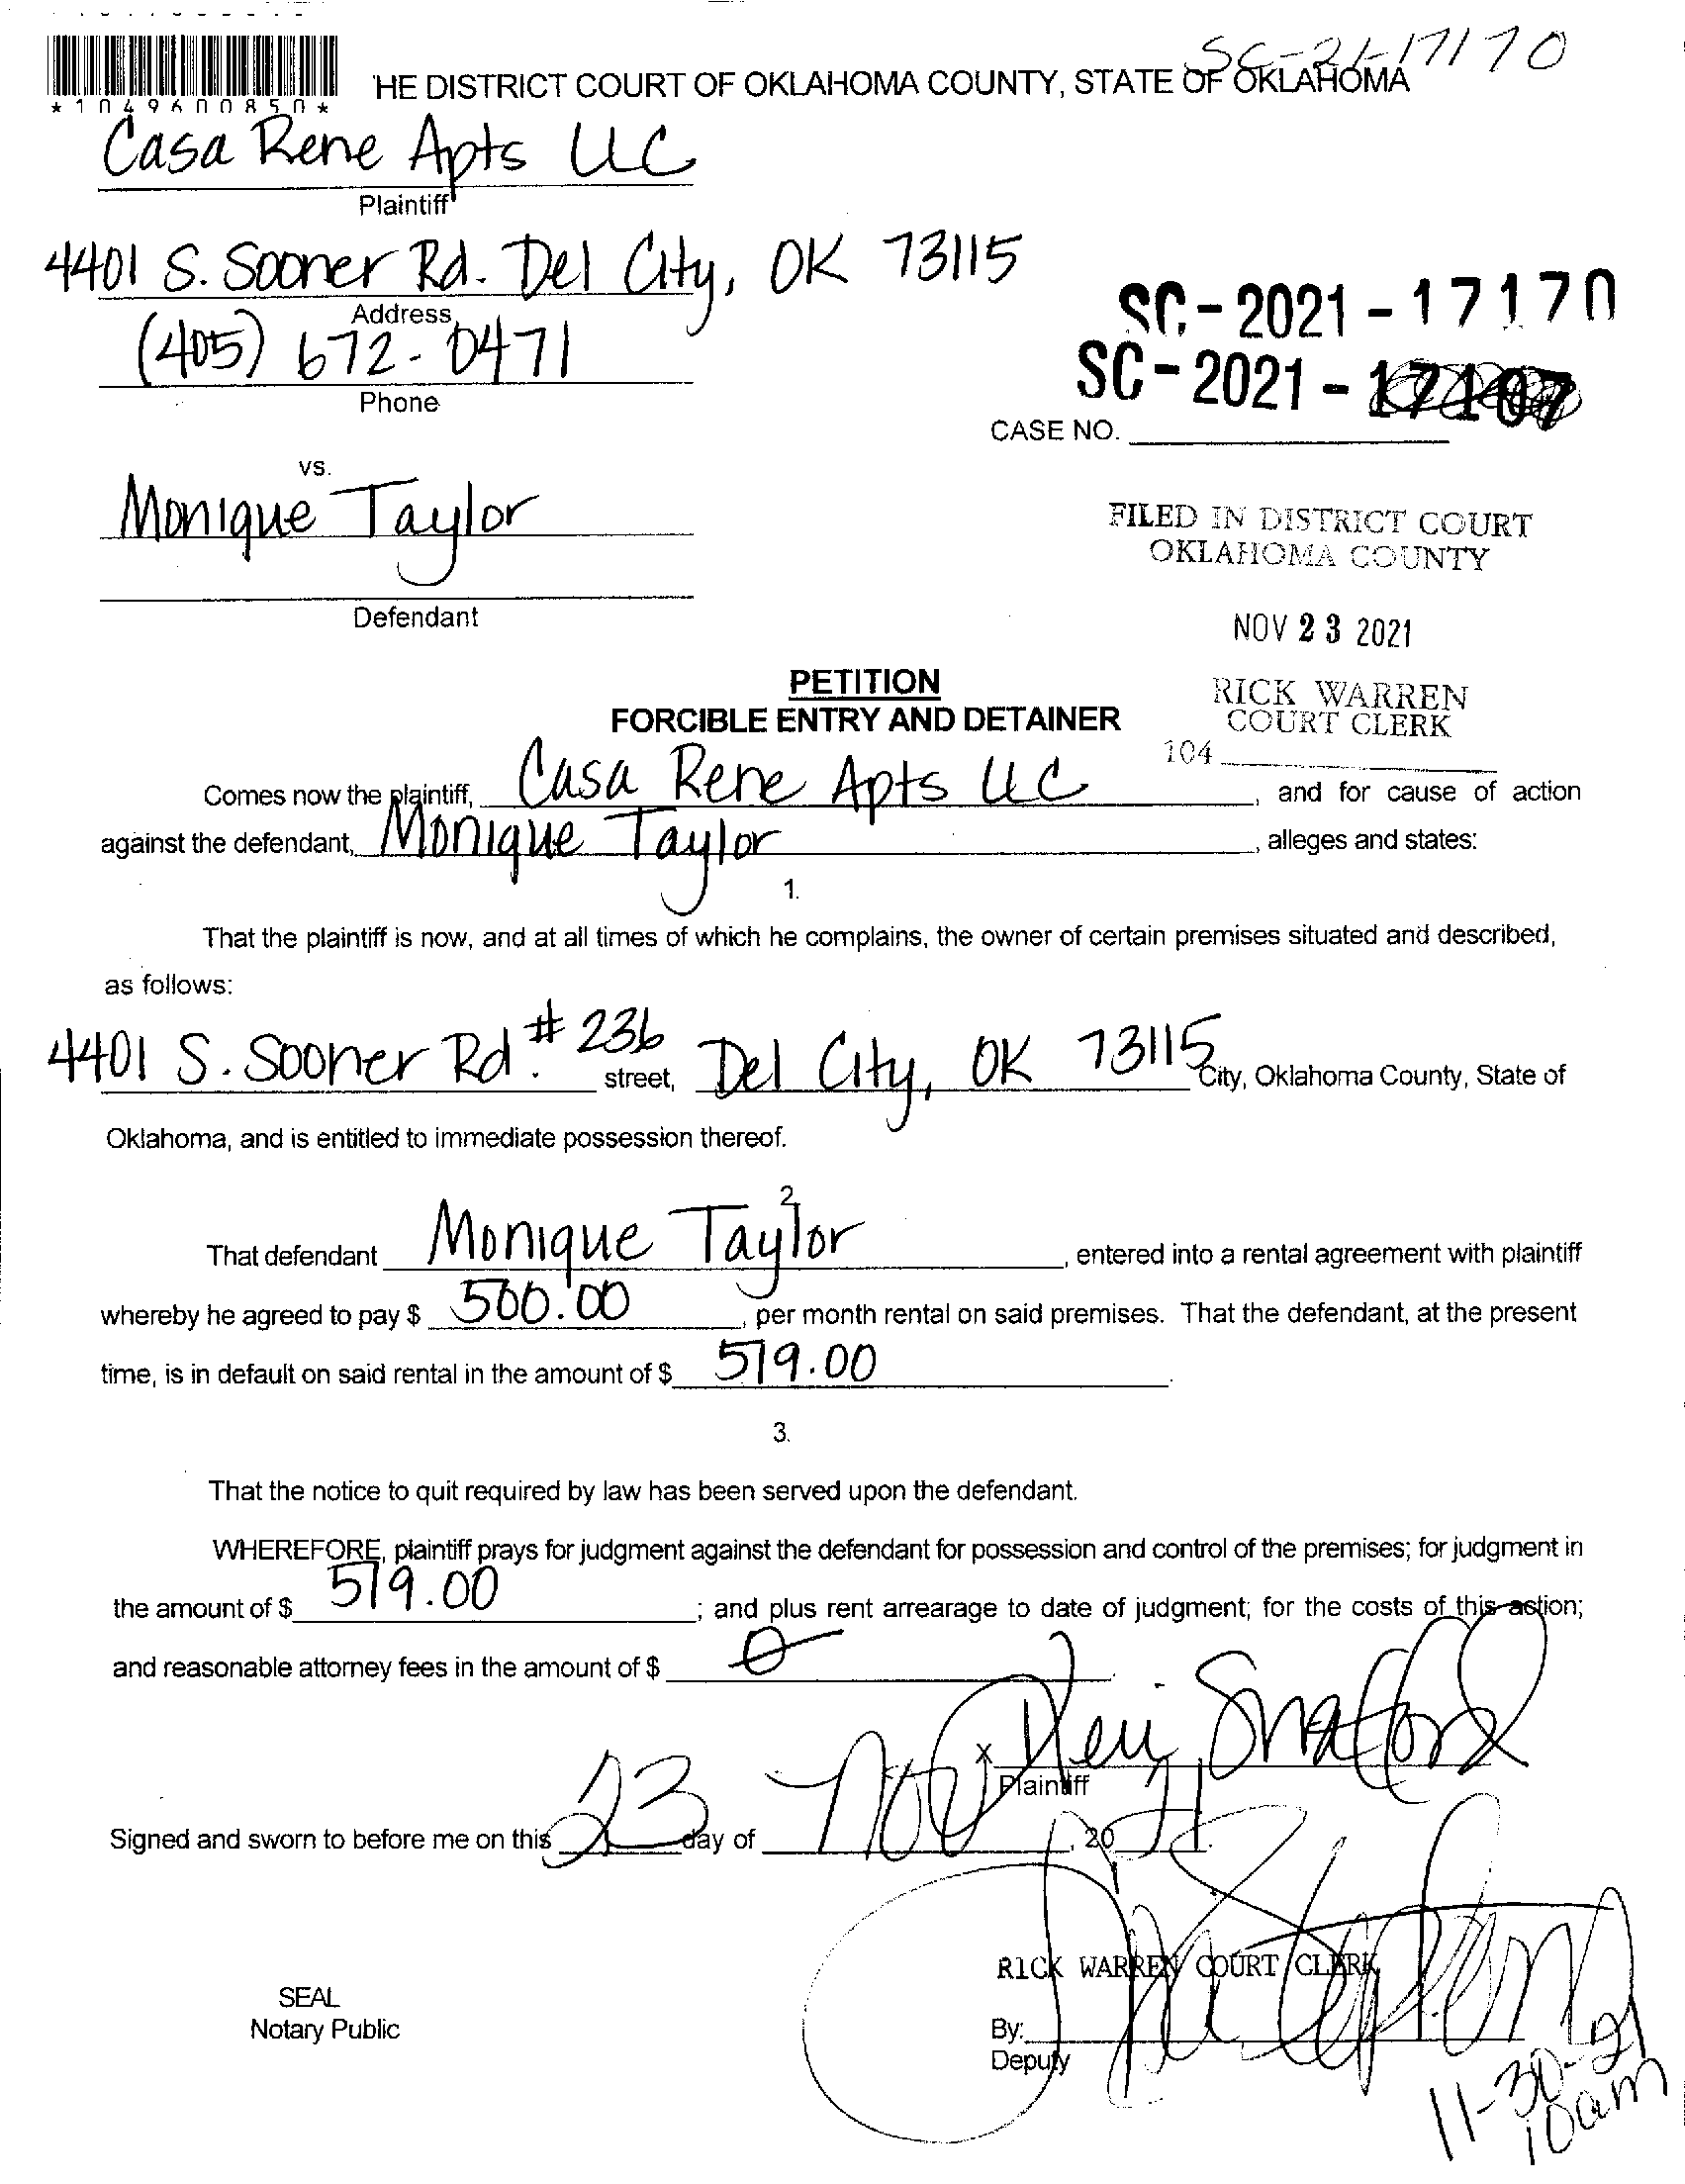 SC-21-17170
*1049600850*
HE DISTRICT COURT OF OKLAHOMA COUNTY, STATE OF OKLAHOMA
Casa Rene Apts LLC
Plaintiff
4401 S. Sooner Rd. Del City, OK 73115
Address
(405) 672-0471
Phone
SC-2021-17170
SC-2021-17107
CASE NO.
vs.
Monique Taylor
Defendant
FILED IN DISTRICT COURT
OKLAHOMA COUNTY
NOV 23 2021
RICK WARREN
COURT CLERK
104
PETITION
FORCIBLE ENTRY AND DETAINER
Comes now the plaintiff, Casa Rene Apts LLC, and for cause of action
against the defendant, Monique Taylor, alleges and states:
1.
That the plaintiff is now, and at all times of which he complains, the owner of certain premises situated and described,
as follows:
4401 S. Sooner Rd. #236 street, Del City, OK 73115 City, Oklahoma County, State of
Oklahoma, and is entitled to immediate possession thereof.
2.
That defendant Monique Taylor, entered into a rental agreement with plaintiff
whereby he agreed to pay $ 500.00, per month rental on said premises. That the defendant, at the present
time, is in default on said rental in the amount of $ 519.00.
3.
That the notice to quit required by law has been served upon the defendant.
WHEREFORE, plaintiff prays for judgment against the defendant for possession and control of the premises; for judgment in
the amount of $ 519.00; and plus rent arrearage to date of judgment; for the costs of this action;
and reasonable attorney fees in the amount of $ 0
X
Plaintiff
Signed and sworn to before me on this 23 day of Nov, 2021.
RICK WARREN COURT CLERK
SEAL
Notary Public
By:
Deputy
11-30-21
10am